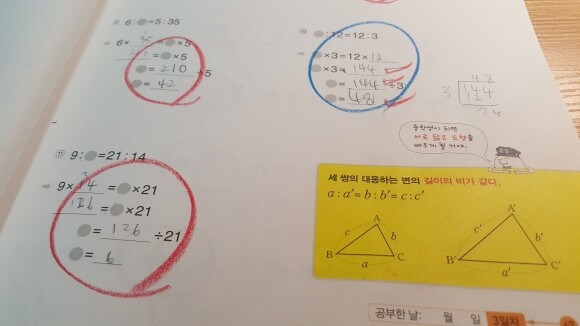 ⑨ 6:●=5:35
⇨ 6×35=●×5
210=●×5
●=210÷5
●=42
⑩ ●:12=12:3
⇨ ●×3=12×12
●×3=144
●=144÷3
●=48
3 144
⑪ 9:●=21:14
⇨ 9×14=●×21
126=●×21
●=126÷21
●=6
중학생이 되면
서로 닮은 도형을
배우게 될 거야.
세 쌍의 대응하는 변의 길이의 비가 같다.
a:a′=b:b′=c:c′
A
c b
B C
a
A′
c′ b′
B′ C′
a′
공부한 날: 월 일 3일차